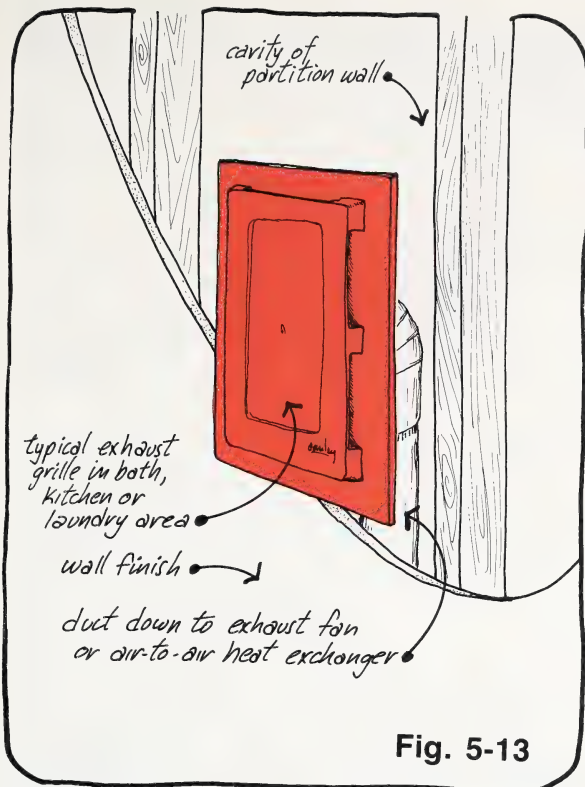 cavity of
partition wall
typical exhaust
grille in bath,
kitchen or
laundry area
wall finish
duct down to exhaust fan
or air-to-air heat exchanger
Fig. 5-13